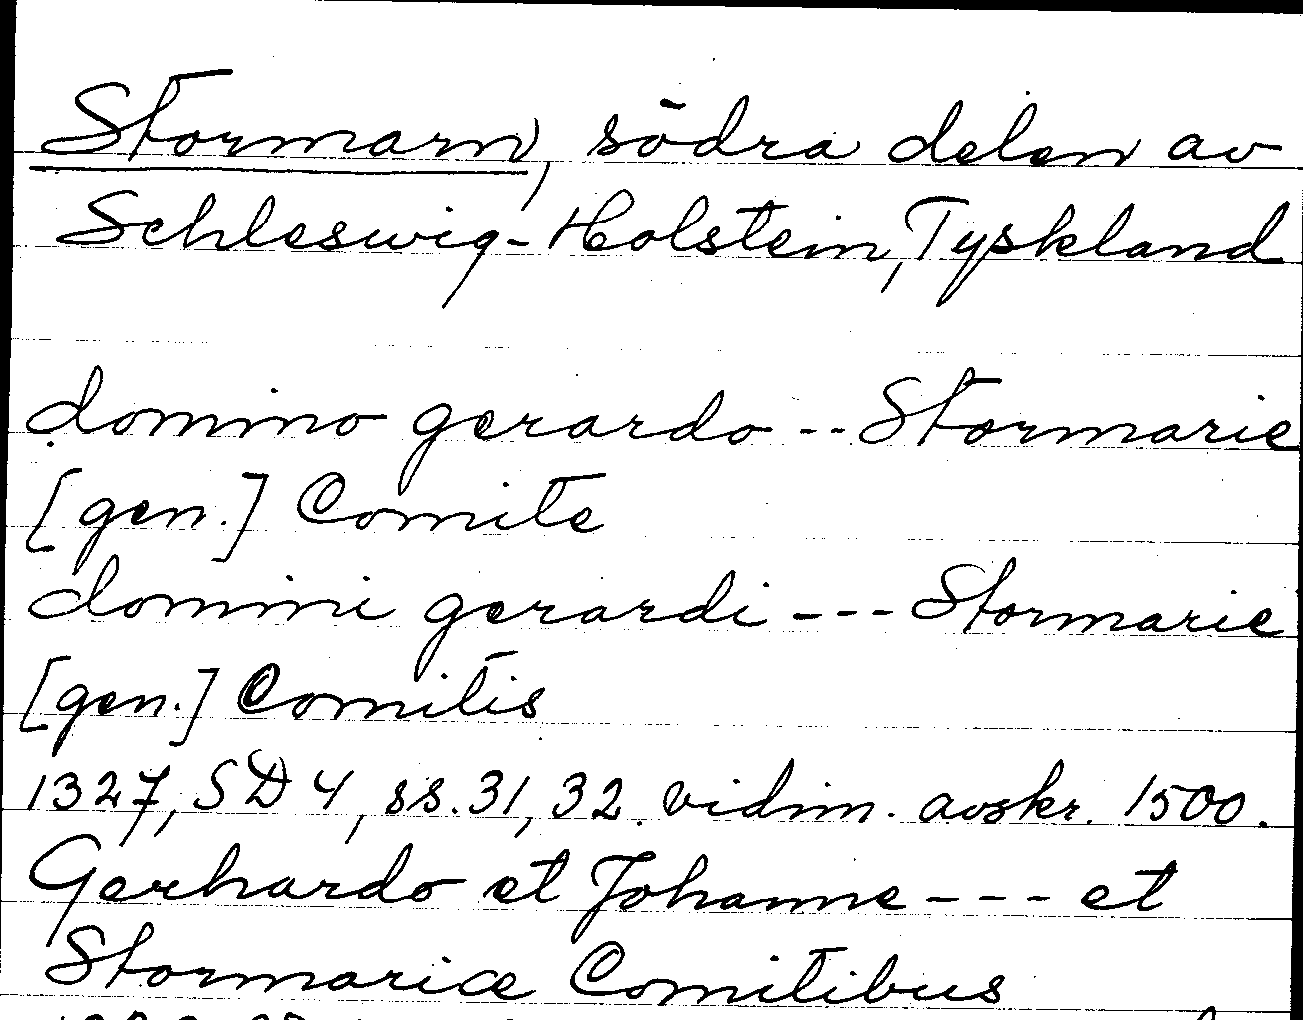 Stormarn, södra delen av
Schleswig-Holstein, Tyskland
domino gerardo -- Stormarie
[gen.] Comite
domini gerardi --- Stormarie
[gen.] Comitis
1327, SD 4, ss. 31, 32. vidim. avskr. 1500.
Gerhardo et Johanne --- et
Stormariæ Comitibus